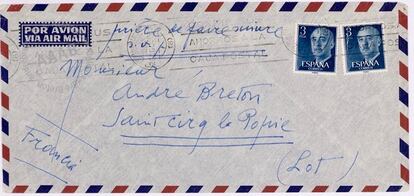 POR AVION
VIA AIR MAIL
prière de faire suivre
p.v.
CADA POSTAL
3
ESPAÑA
3
ESPAÑA
Monsieur
André Breton
Saint Cirq la Popie
(Lot)
Francia